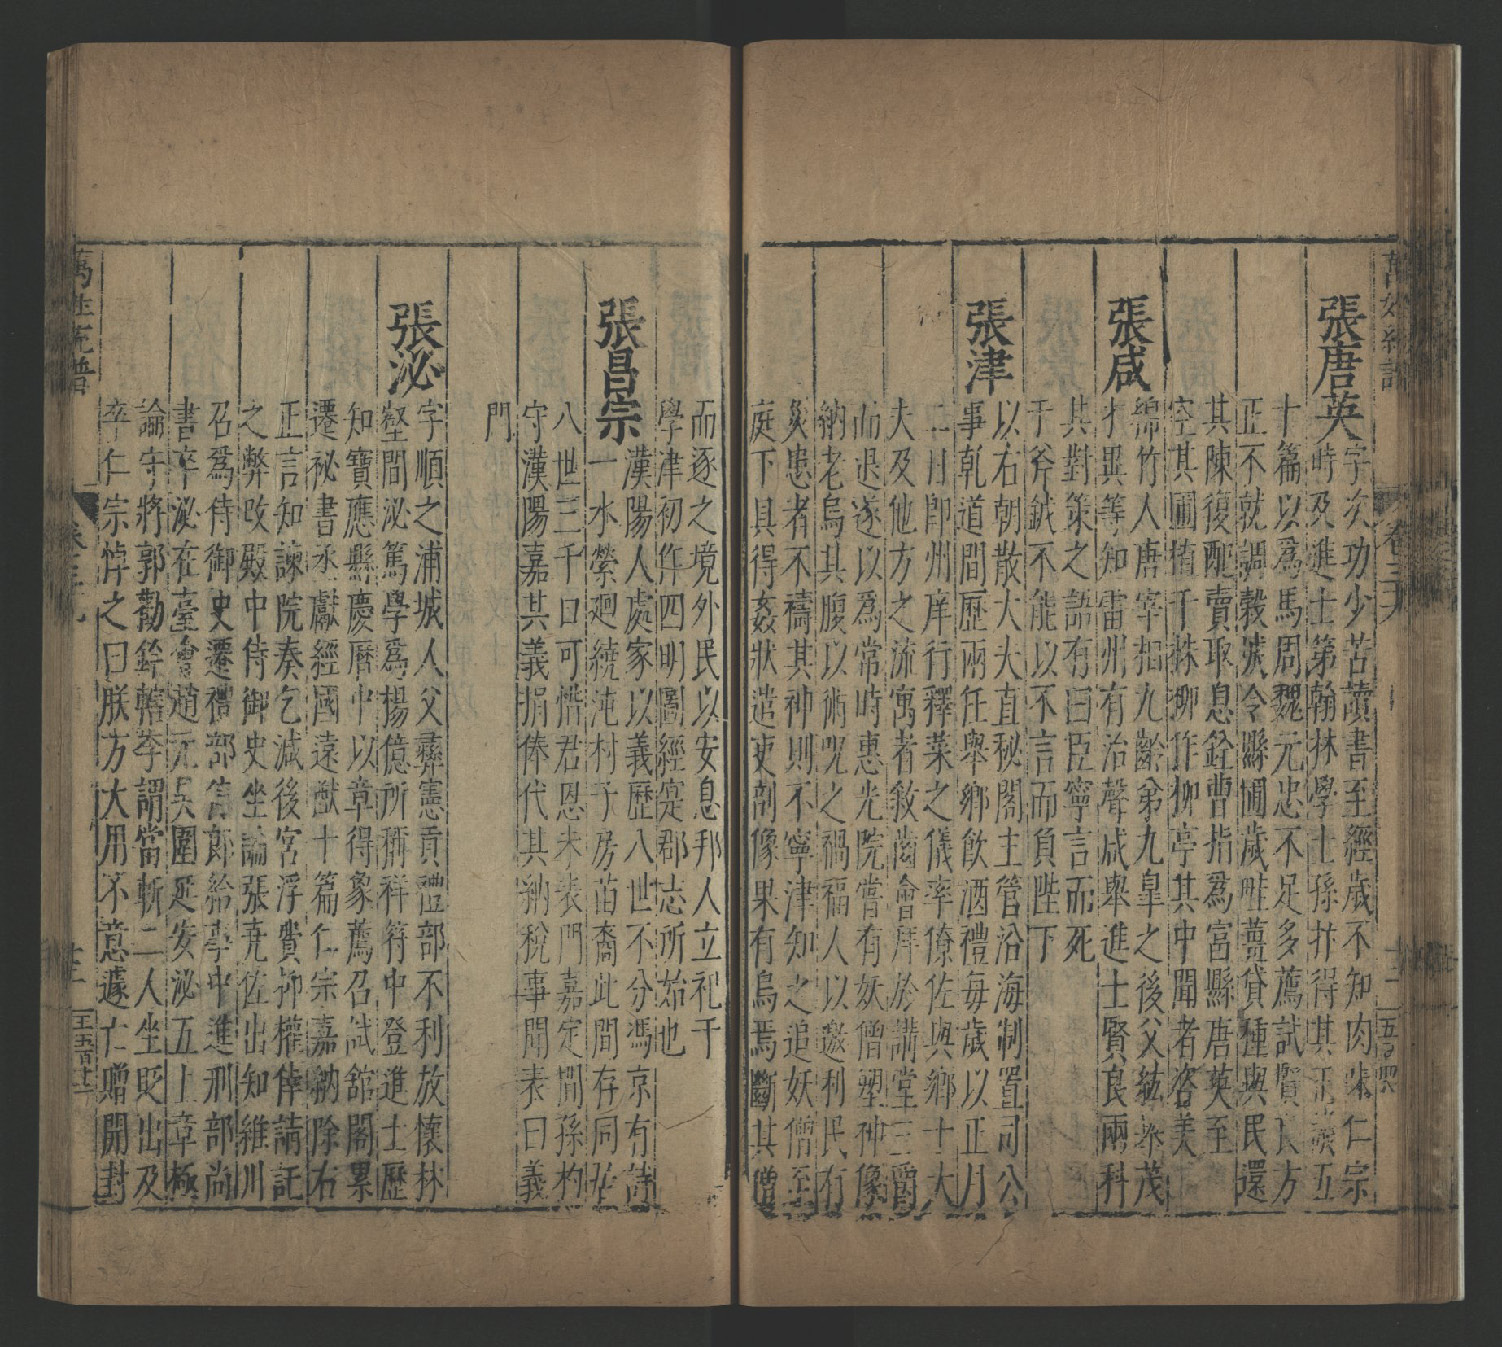 張唐英
字次功少苦讀書至經歲不知肉味仁宗
時及進士第翰林學士孫抃得其正議五
十篇以爲馬周魏元忠不足多薦試賢良方
正不就調穀城令縣圃歲畦薑貸種與民還
其陳復配賣取息銓曹指爲宮縣唐英至
空其圃植千株柳作柳亭其中聞者咨美
張咸
綿竹人唐宰相九齡弟九皐之後父紘舉茂
才異等知雷州有治聲咸舉進士賢良兩科
其對策之語有曰臣寧言而死
于斧鉞不能以不言而負陛下
張津
以右朝散大夫直秘閣主管沿海制置司公
事乾道間歷兩任舉鄉飲酒禮每歲以正月
二日即州庠行釋菜之儀率僚佐與鄉士大
夫及他方之流寓者敘齒會拜於講堂三爵
而退遂以爲常時惠光院嘗有妖僧塑神像
納老烏其腹以術呪之禍福人以邀利民有
災患者不禱其神則不寧津知之追妖僧至
庭下具得姦狀遣吏剖像果有烏焉斷其僧
而逐之境外民以安息邦人立祀于
學津初作四明圖經寔郡志所始也
張昌宗
漢陽人處家以義歷八世不分馮京有詩
一水縈廻繞沌村子房苗裔此間存同居
八世三千口可惜君恩未表門嘉定間孫杓
守漢陽嘉其義捐俸代其納稅事聞表曰義
門
張泌
字順之浦城人父彝憲貢禮部不利放懷林
壑間泌篤學爲楊億所稱祥符中登進士歷
知寶應縣慶曆中以章得象薦召試舘閣累
遷祕書丞獻經國遠猷十篇仁宗嘉納除右
正言知諫院奏乞減後宮浮費抑權倖請託
之弊改殿中侍御史坐論張堯佐出知維川
召爲侍御史遷禮部侍郎給事中進刑部尚
書卒泌在臺會趙元昊圍延安泌五上章極
論守將郭勸鈐轄李謂當斬二人坐貶出及
卒仁宗悼之曰朕方大用不意遽亡贈開封